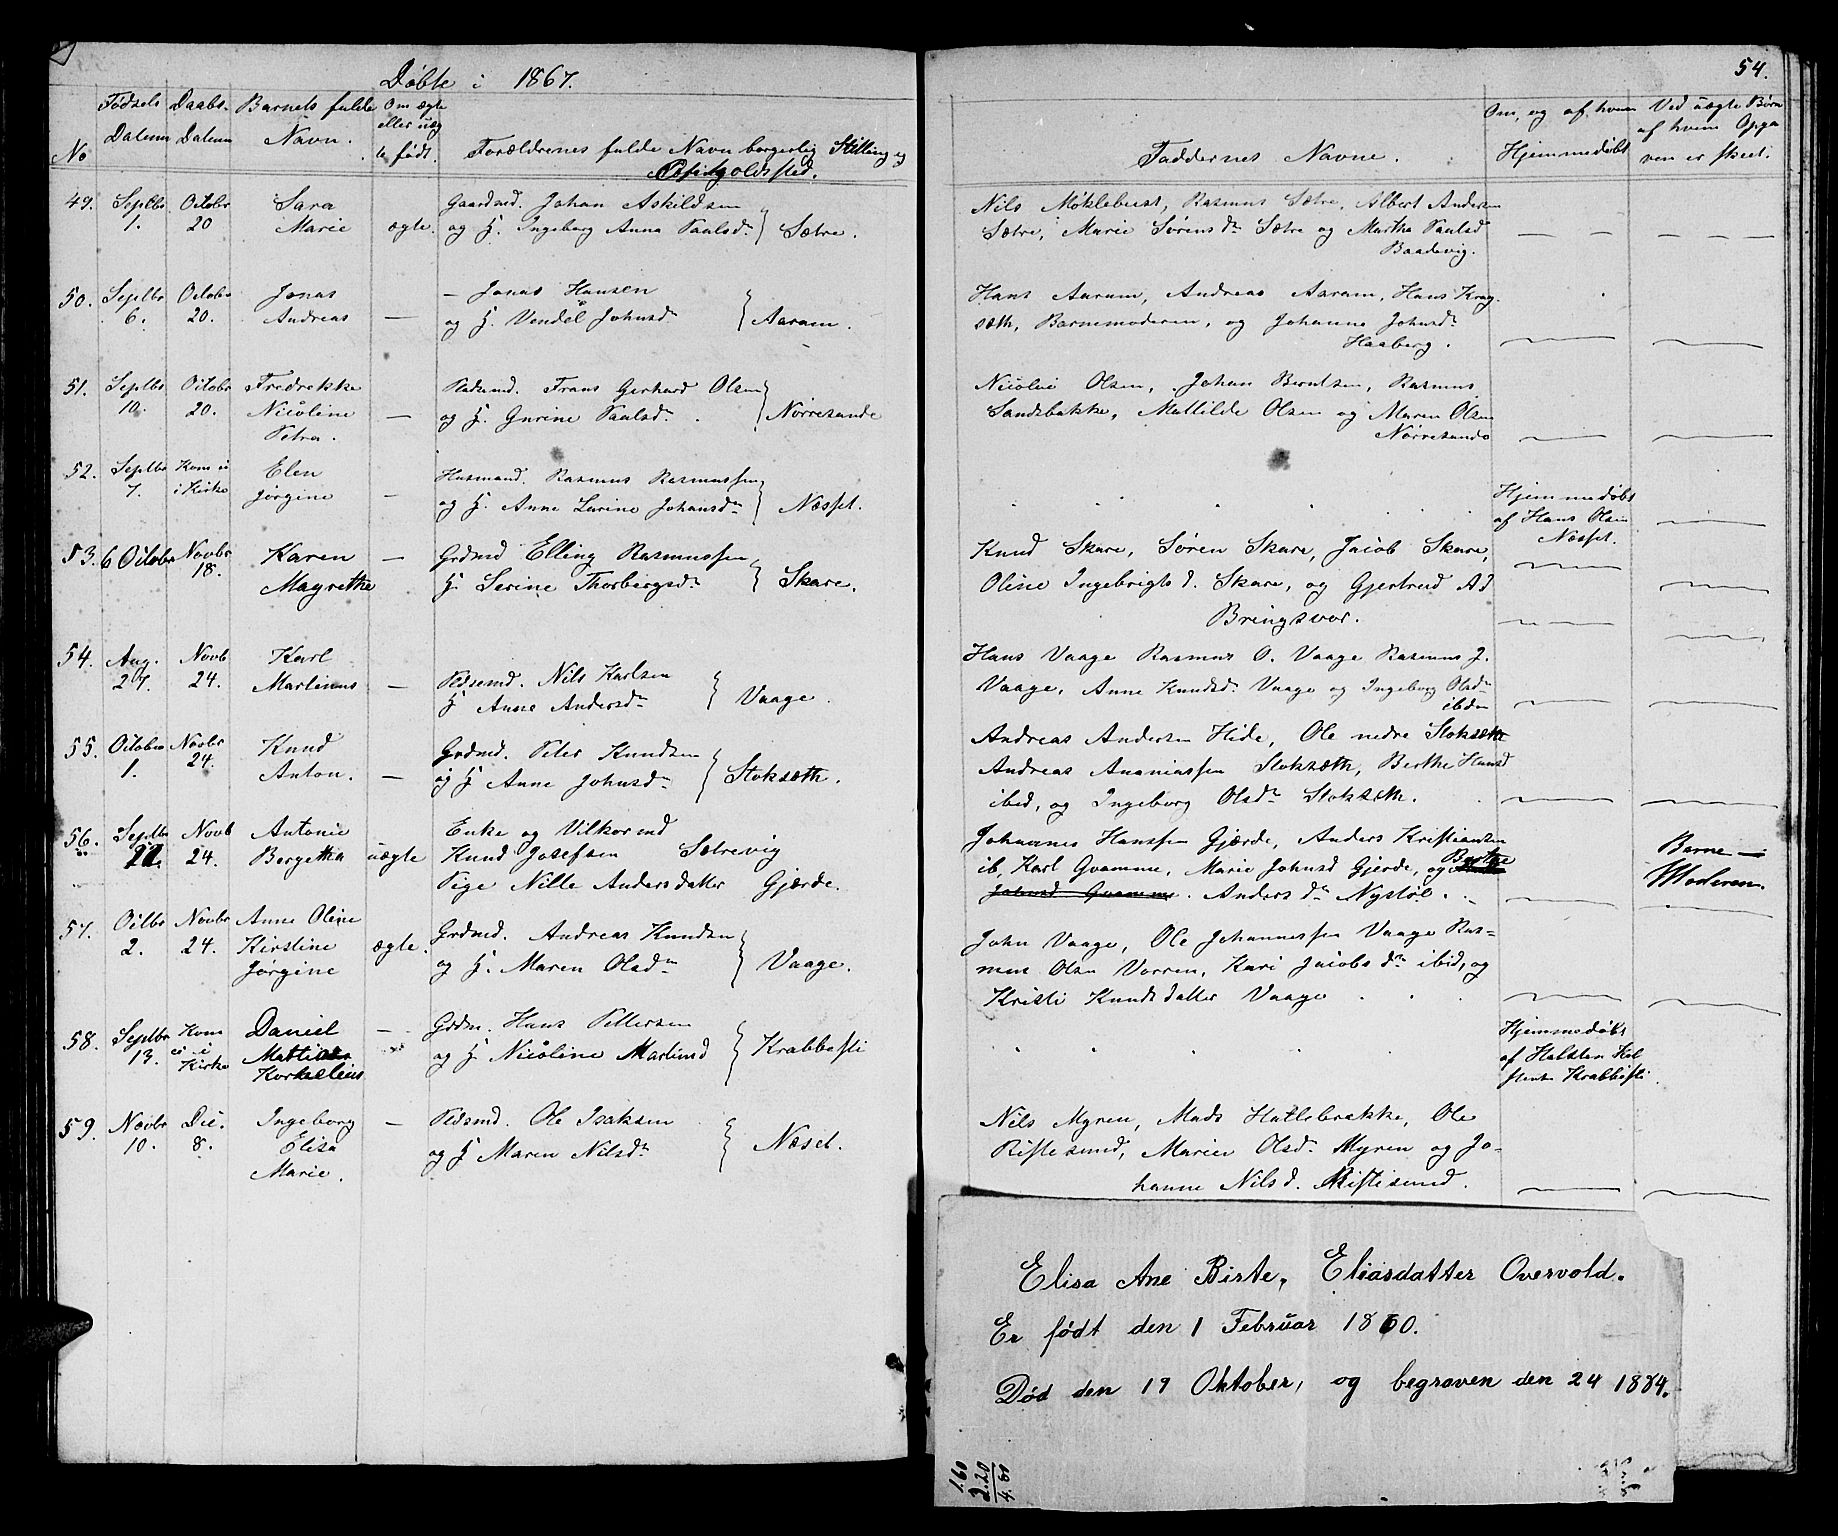 Døbte i 1867.
54.
No
Fødsels Datum
Daabs Datum
Barnets fulde Navn.
Om ægte eller uæg te født.
Forældrenes fulde Navn borgerlig Stilling og
Faddernes Navne.
Om og af hvem Hjemmedøbt
Ved uægte Børn af hvem Opga ven er skeet.
49. Septbr 1. Octobr 20 Sara Marie ægte.
Gaardmd. Johan Askildsen
og H. Ingeborg Anna Paulsdr } Sætre.
Nils Møklebust, Rasmus Sætre, Albert Andersen
Sætre, Marie Sørensdr Sætre og Martha Paulsd
Baadsvig.
50. Septbr 6. Octobr 20. Jonas Andreas —
— Jonas Hansen
og H. Vendel Johnsdr } Aaram.
Hans Aaram, Andreas Aaram, Hans Krag
sæth, Barnemoderen, og Johanne Johnsdr
Haaberg.
51. Septbr 10. Octobr 20. Fredrekke Nicoline Petra. —
Pladsmd. Frans Gerhard Olsen
og H. Gurine Paulsdr } Nørresande
Nicolai Olsen, Johan Berntsen, Rasmus
Sandsbakke, Mathilde Olsen og Maren Olsen
Nørresande
52. Septbr 7. Kom ei i Kirke Elen Jørgine —
Husmand. Rasmus Rasmussen
og H. Anne Larine Johansdr } Næsset.
Hjemmedøbt
af Hans Olsen
Næsset.
53. 6 Octobr Novbr 18. Karen Magrethe —
Grdmd Elling Rasmussen
H. Serine Thorbergsdr } Skare.
Knud Skare, Søren Skare, Jacob Skare,
Oline Ingebrigtsd. Skare, og Gjertrud A d
Bringsvor.
54. Aug. 27. Novb 24. Karl Martinus —
Pldsemd. Nils Karlsen
H Anne Andersdr } Vaage.
Hans Vaage Rasmus O. Vaage Rasmus J.
Vaage, Anne Knudsdr Vaage og Ingeborg Olsdr
ibdm
55. Octobr 1. Novbr 24. Knud Anton. —
Grdmd. Peter Knudsen
og H Anne Johnsdr } Stoksæth.
Andreas Andersen Hide, Ole nedre Stoksæth
Andreas Ananiassen Stoksæth, Berthe Hansd
ibid, og Ingeborg Olsdr Stoksæth.
56. Septbr Novb 24. Antonie Bergetha uægte
Enke og Vilkormd
Knud Josefsen Sætrevig
Pige Nille Andersdatter Gjærde.
Johannes Hanssen Gjærde, Anders Kristiansen
ib, Karl Qvamme, Marie Johnsd Gjerde, og Berthe
Johnsd Qvamme. Andersdr Nystøl.
Barne-
Moderen.
57. Octbr 2. Novbr 24. Anne Oline Kirstine Jørgine ægte.
Grdmd. Andreas Knudsen
og H. Maren Olsdr } Vaage.
John Vaage, Ole Johannessen Vaage Ras-
mus Olsn Vorren, Kari Jacobsdr ibid, og
Kristi Knudsdatter Vaage
58. Septbr 13. Kom ei i Kirke Daniel Kornelius —
Grdm. Hans Pettersen
og H Nicoline Martinsd } Krabbesti
Hjemmedøbt
af Halsten Hal
stens Krabbesti.
59. Novbr 10. Dec. 8. Ingeborg Elisa Marie. —
Pldsmd. Ole Isaksen
og H Maren Nilsdr } Næset.
Nils Myren, Mads Hatlebrække, Ole
Ristesund, Marie Olsdr Myren og Jo-
hanne Nilsd. Ristesund.
Elisa Ane Birte, Eliasdatter Overvold.
Er født den 1 Februar 1860.
Død den 19 Oktober, og begraven den 24 1884.
1.60
2.20